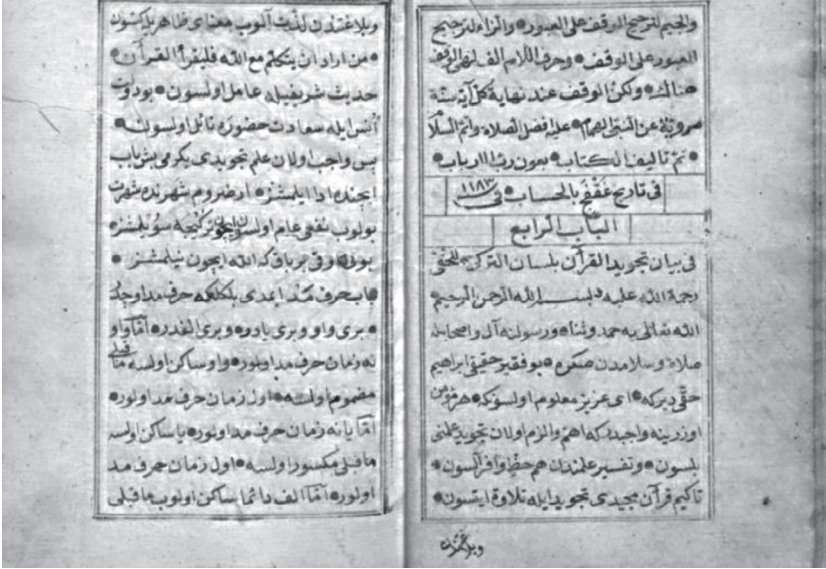 والجيم لترجيح الوقف على العبور والزاء لترجيح
العبور على الوقف وحرف اللام الف لنهى الوقف
هناك ولكن الوقف عند نهاية كل آية سنة
مروية عن النبي الهمام عليه افضل الصلاة واتم السلام
تم تاليف الكتاب بعون رب الارباب
فى تاريخ غقفج بالحساب فى ١١٨٣
الباب الرابع
فى بيان تجويد القرآن بلسان التركى للحقى
رحمة الله عليه بسم الله الرحمن الرحيم
الله تعالى يه حمد وثنا ورسولنه آل واصحابنه
صلاة وسلامدن صكره بو فقير حقير ابراهيم
حقى ديركه اى عزيز معلوم اولسونكه هر مؤمن
اوزرينه واجبدركه اهم والزم اولان تجويد علمنى
بلسون وتفسير علمندن هم حظ وافر آلسون
تاكيم قرآن مجيدى تجويد ايله تلاوة ايتسون
وبلاغتدن
وبلاغتدن لذت آلوب معناى ظاهريله كتسون
من اراد ان يتكلم مع الله فليقرأ القرآن
حديث شريفيله عامل اولسون بو دولت
انس ايله سعادت حضوره نائل اولسون
پس واجب اولان علم تجويدى يكرمى بش باب
ايچنده ادا ايلمشز ارضروم شهرنده شهرت
بولوب نفعى عام اولسون ايچون تركيجه سويلمشز
بونى اوقى يربا كه الله ايچون نيلمشز
باب حرف مد ايمدى بلكلكه حرف مد اوچدر
برى واو وبرى يادر وبرى الفدر اما واو
نه زمان حرف مد اولور واو ساكن اولسه ما قبلى
مضموم اولسه اول زمان حرف مد اولور
اما يا نه زمان حرف مد اولور يا ساكن اولسه
ما قبلى مكسور اولسه اول زمان حرف مد
اولور اما الف دائما ساكن اولوب ما قبلى